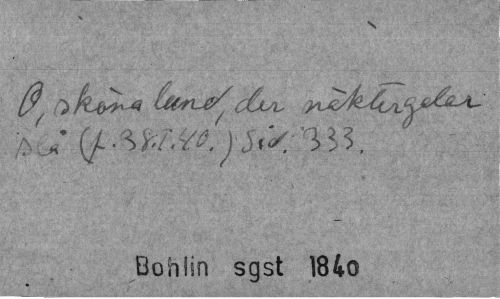 O, sköna lund, der näktergalar
slå (f. 38.T.40.) Sid. 333.
Bohlin sgst 1840